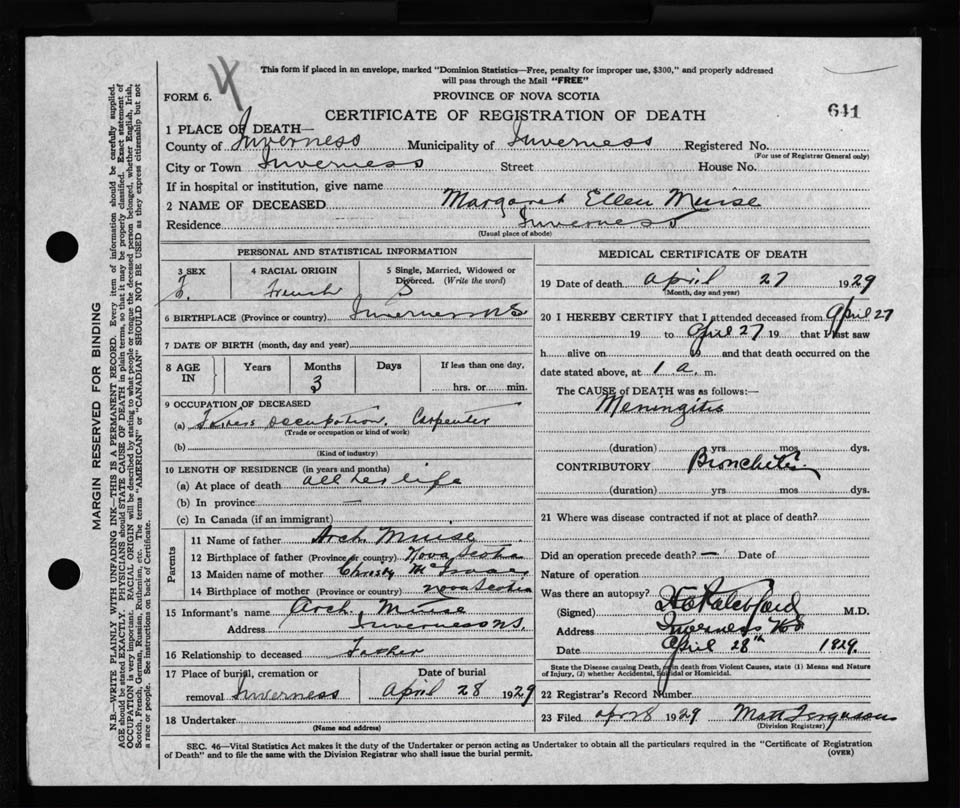 This form if placed in an envelope, marked "Dominion Statistics—Free, penalty for improper use, $300," and properly addressed
will pass through the Mail "FREE"
FORM 6. 4 PROVINCE OF NOVA SCOTIA
641
CERTIFICATE OF REGISTRATION OF DEATH
1 PLACE OF DEATH—
County of Inverness Municipality of Inverness Registered No.
(For use of Registrar General only)
City or Town Inverness Street House No.
If in hospital or institution, give name
2 NAME OF DECEASED Margaret Ellen Muise
Residence Inverness
(Usual place of abode)
PERSONAL AND STATISTICAL INFORMATION
3 SEX 4 RACIAL ORIGIN 5 Single, Married, Widowed or
Divorced. (Write the word)
F. French S
6 BIRTHPLACE (Province or country) Inverness N S
7 DATE OF BIRTH (month, day and year)
8 AGE IN Years Months Days If less than one day,
3 hrs. or min.
9 OCCUPATION OF DECEASED
(a) occupation, Carpenter
(Trade or occupation or kind of work)
(b)
(Kind of industry)
10 LENGTH OF RESIDENCE (in years and months)
(a) At place of death all her life
(b) In province —
(c) In Canada (if an immigrant)
Parents
11 Name of father Arch. Muise
12 Birthplace of father (Province or country) Nova Scotia
13 Maiden name of mother Christy McIsaac
14 Birthplace of mother (Province or country) Nova Scotia
15 Informant's name Arch. Muise
Address Inverness N.S.
16 Relationship to deceased Father
17 Place of burial, cremation or Date of burial
removal Inverness April 28 1929
18 Undertaker
(Name and address)
MEDICAL CERTIFICATE OF DEATH
19 Date of death April 27 1929
(Month, day and year)
20 I HEREBY CERTIFY that I attended deceased from April 27
19 to April 27 19 that I last saw
h alive on 19 and that death occurred on the
date stated above, at 1 a. m.
The CAUSE of DEATH was as follows:—
Meningitis
(duration) yrs mos dys.
CONTRIBUTORY Bronchitis
(duration) yrs mos dys.
21 Where was disease contracted if not at place of death?
Did an operation precede death? — Date of
Nature of operation
Was there an autopsy?
(Signed) M.D.
Address Inverness N S
Date April 28th 1929.
State the Disease causing Death, or in death from Violent Causes, state (1) Means and Nature
of Injury, (2) whether Accidental, Suicidal or Homicidal.
22 Registrar's Record Number
23 Filed 1929 Matt Ferguson
(Division Registrar)
SEC. 46—Vital Statistics Act makes it the duty of the Undertaker or person acting as Undertaker to obtain all the particulars required in the "Certificate of Registration
of Death" and to file the same with the Division Registrar who shall issue the burial permit. (OVER)
MARGIN RESERVED FOR BINDING
N.B.—WRITE PLAINLY WITH UNFADING INK—THIS IS A PERMANENT RECORD. Every item of information should be carefully supplied.
AGE should be stated EXACTLY. PHYSICIANS should STATE CAUSE OF DEATH in plain terms, so that it may be properly classified. Exact statement of
OCCUPATION is very important. RACIAL ORIGIN will be described by stating to what people or tongue the deceased person belonged, whether English, Irish,
Scotch, French, German, Russian, Ruthenian, etc. The terms "AMERICAN" or "CANADIAN" SHOULD NOT BE USED as they express citizenship but not
a race or people. See instructions on back of Certificate.